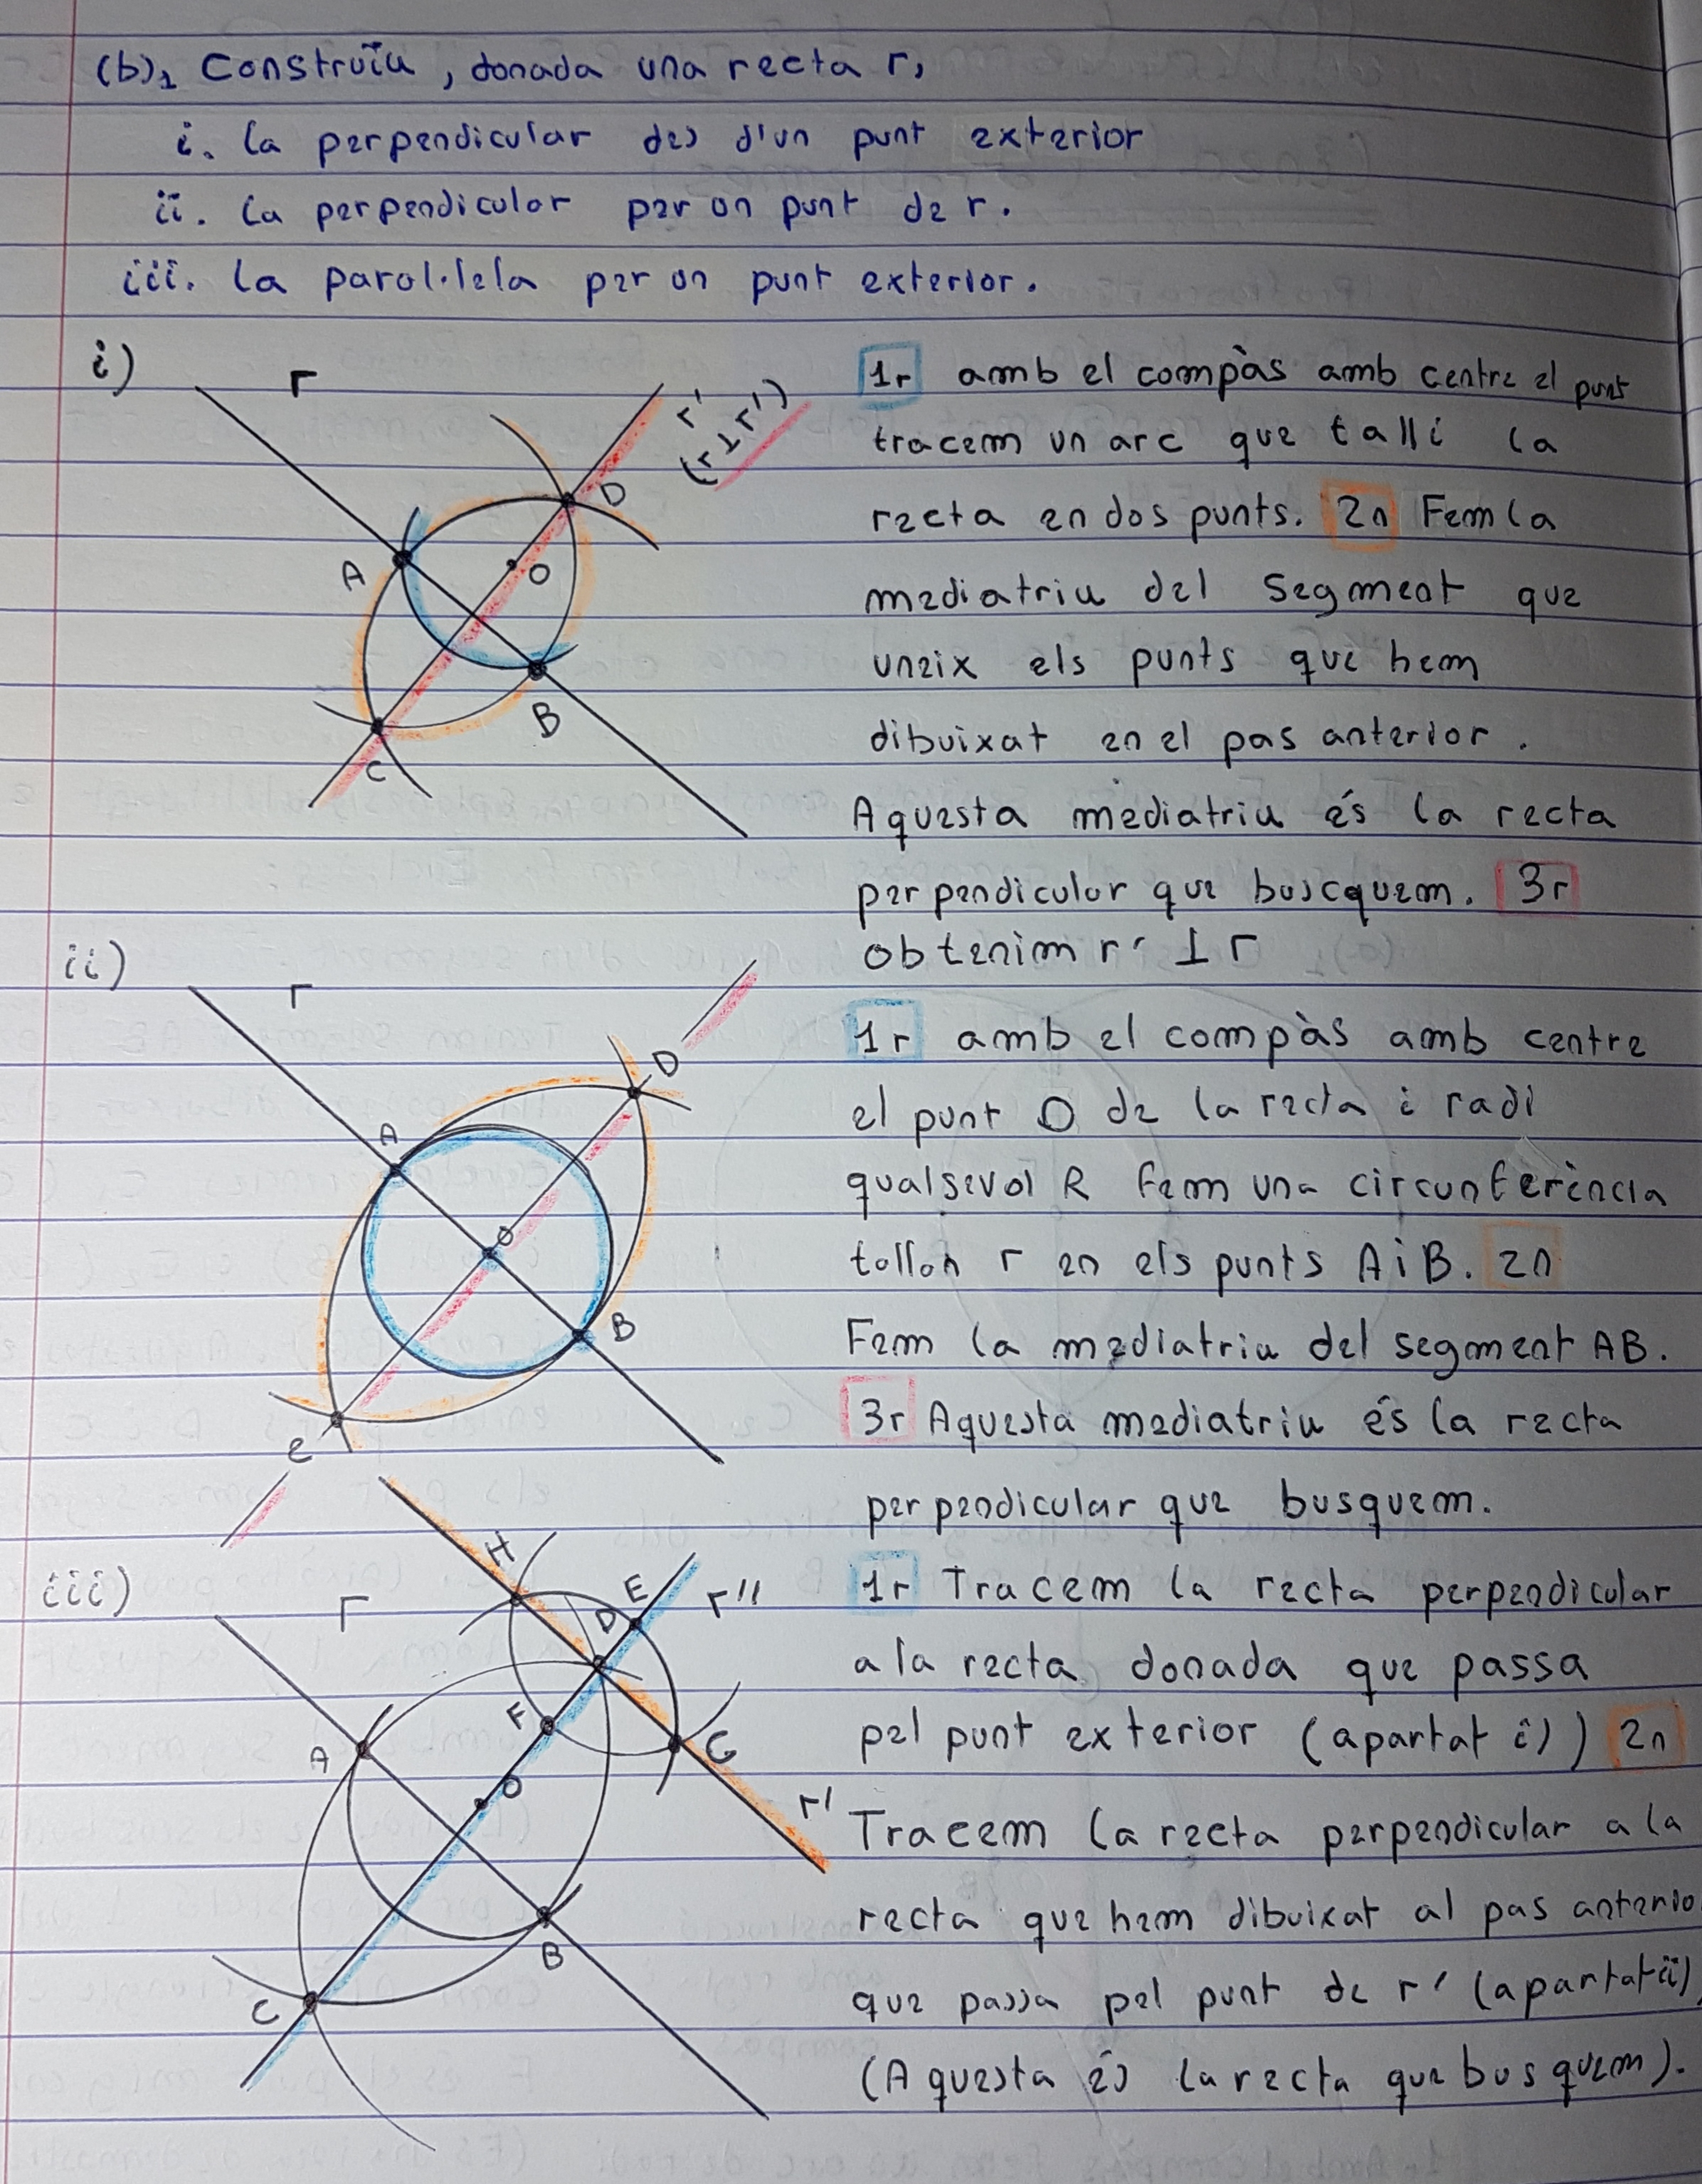 (b)₁ Construïu, donada una recta r,
i. la perpendicular des d'un punt exterior
ii. la perpendicular per un punt de r.
iii. la paral·lela per un punt exterior.
i)
r
r'
(r⊥r')
D
A
O
B
C
1r amb el compàs amb centre el punt
tracem un arc que talli la
recta en dos punts. 2n Fem la
mediatriu del segment que
uneix els punts que hem
dibuixat en el pas anterior.
Aquesta mediatriu és la recta
perpendicular que buscquem. 3r
obtenim r' ⊥ r
ii)
r
D
A
O
B
C
1r amb el compàs amb centre
el punt O de la recta i radi
qualsevol R fem una circunferència
tallan r en els punts A i B. 2n
Fem la mediatriu del segment AB.
3r Aquesta mediatriu és la recta
perpendicular que busquem.
iii)
r
H
D
E
r''
F
G
A
O
r'
B
C
1r Tracem la recta perpendicular
a la recta donada que passa
pel punt exterior (apartat i)) 2n
Tracem la recta perpendicular a la
recta que hem dibuixat al pas anterio
que passa pel punt de r' (apartat ii)
(Aquesta és la recta que busquem).